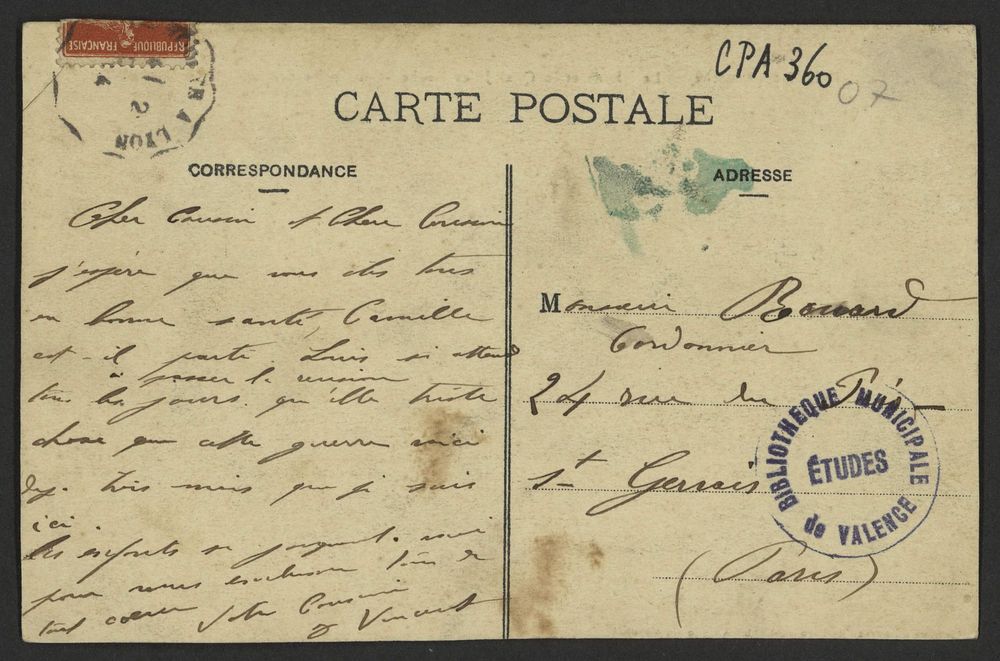 RÉPUBLIQUE FRANÇAISE
A LYON
2
4
CPA 360
07
CARTE POSTALE
CORRESPONDANCE
ADRESSE
Cher Cousin et Chere Cousine
j'espère que vous êtes tous
en bonne santé, Camille
est-il partit Louis si attend
à passer la revision
tous les jours. qu'elle triste
chose que cette guerre voici
dejà trois mois que je suis
ici.
les enfants se joignent à moi
pour vous embrasser tous de
tout coeur Votre Cousine
Vincent
Monsieur Renard
Cordonnier
24 rue du Pré
St Gervais
(Paris)
BIBLIOTHEQUE MUNICIPALE
ÉTUDES
de VALENCE